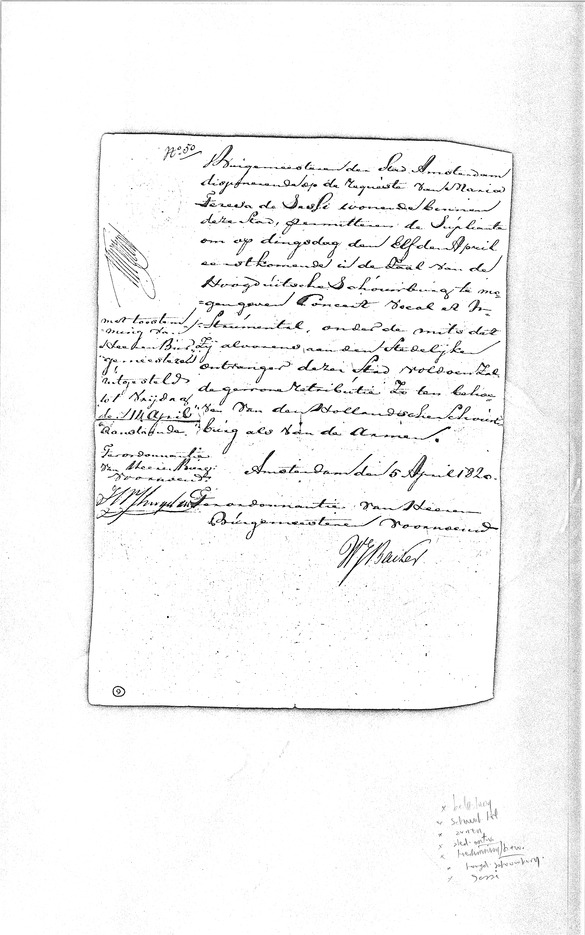 No. 50
Burgemeesteren der Stad Amsterdam
disponerende op de Requeste van Maria
Teresa de Sessi wonende binnen
deze Stad, permitteren de Supliante
om op dingsdag den Elfden April
eerstkomende in de Zaal van de
Hoogduitsche Schouwburg te mo-
gen geven Concert vocal et In-
strumental, onder de mits dat
Zij alvorens aan den Stedelijke
ontvanger dezer Stad voldoen zal
de gewone retributie Zo ten behoe
ve van den Hollandschen Schouw
burg als van de Armen.
Amsterdam den 5 April 1820.
Ter ordonnantie van Heeren
Burgemeesteren Voornoemd
met toestem
ming van
Heeren Bur
gemeesteren
uitgesteld
tot Vrijdag
de 14 April
Aanstaande
Ter ordonnantie
van Heeren Burgr
voornoemd
9
x schouwb
x armen
x sted. ontv.
x hoogd. schouwburg
x Sessi